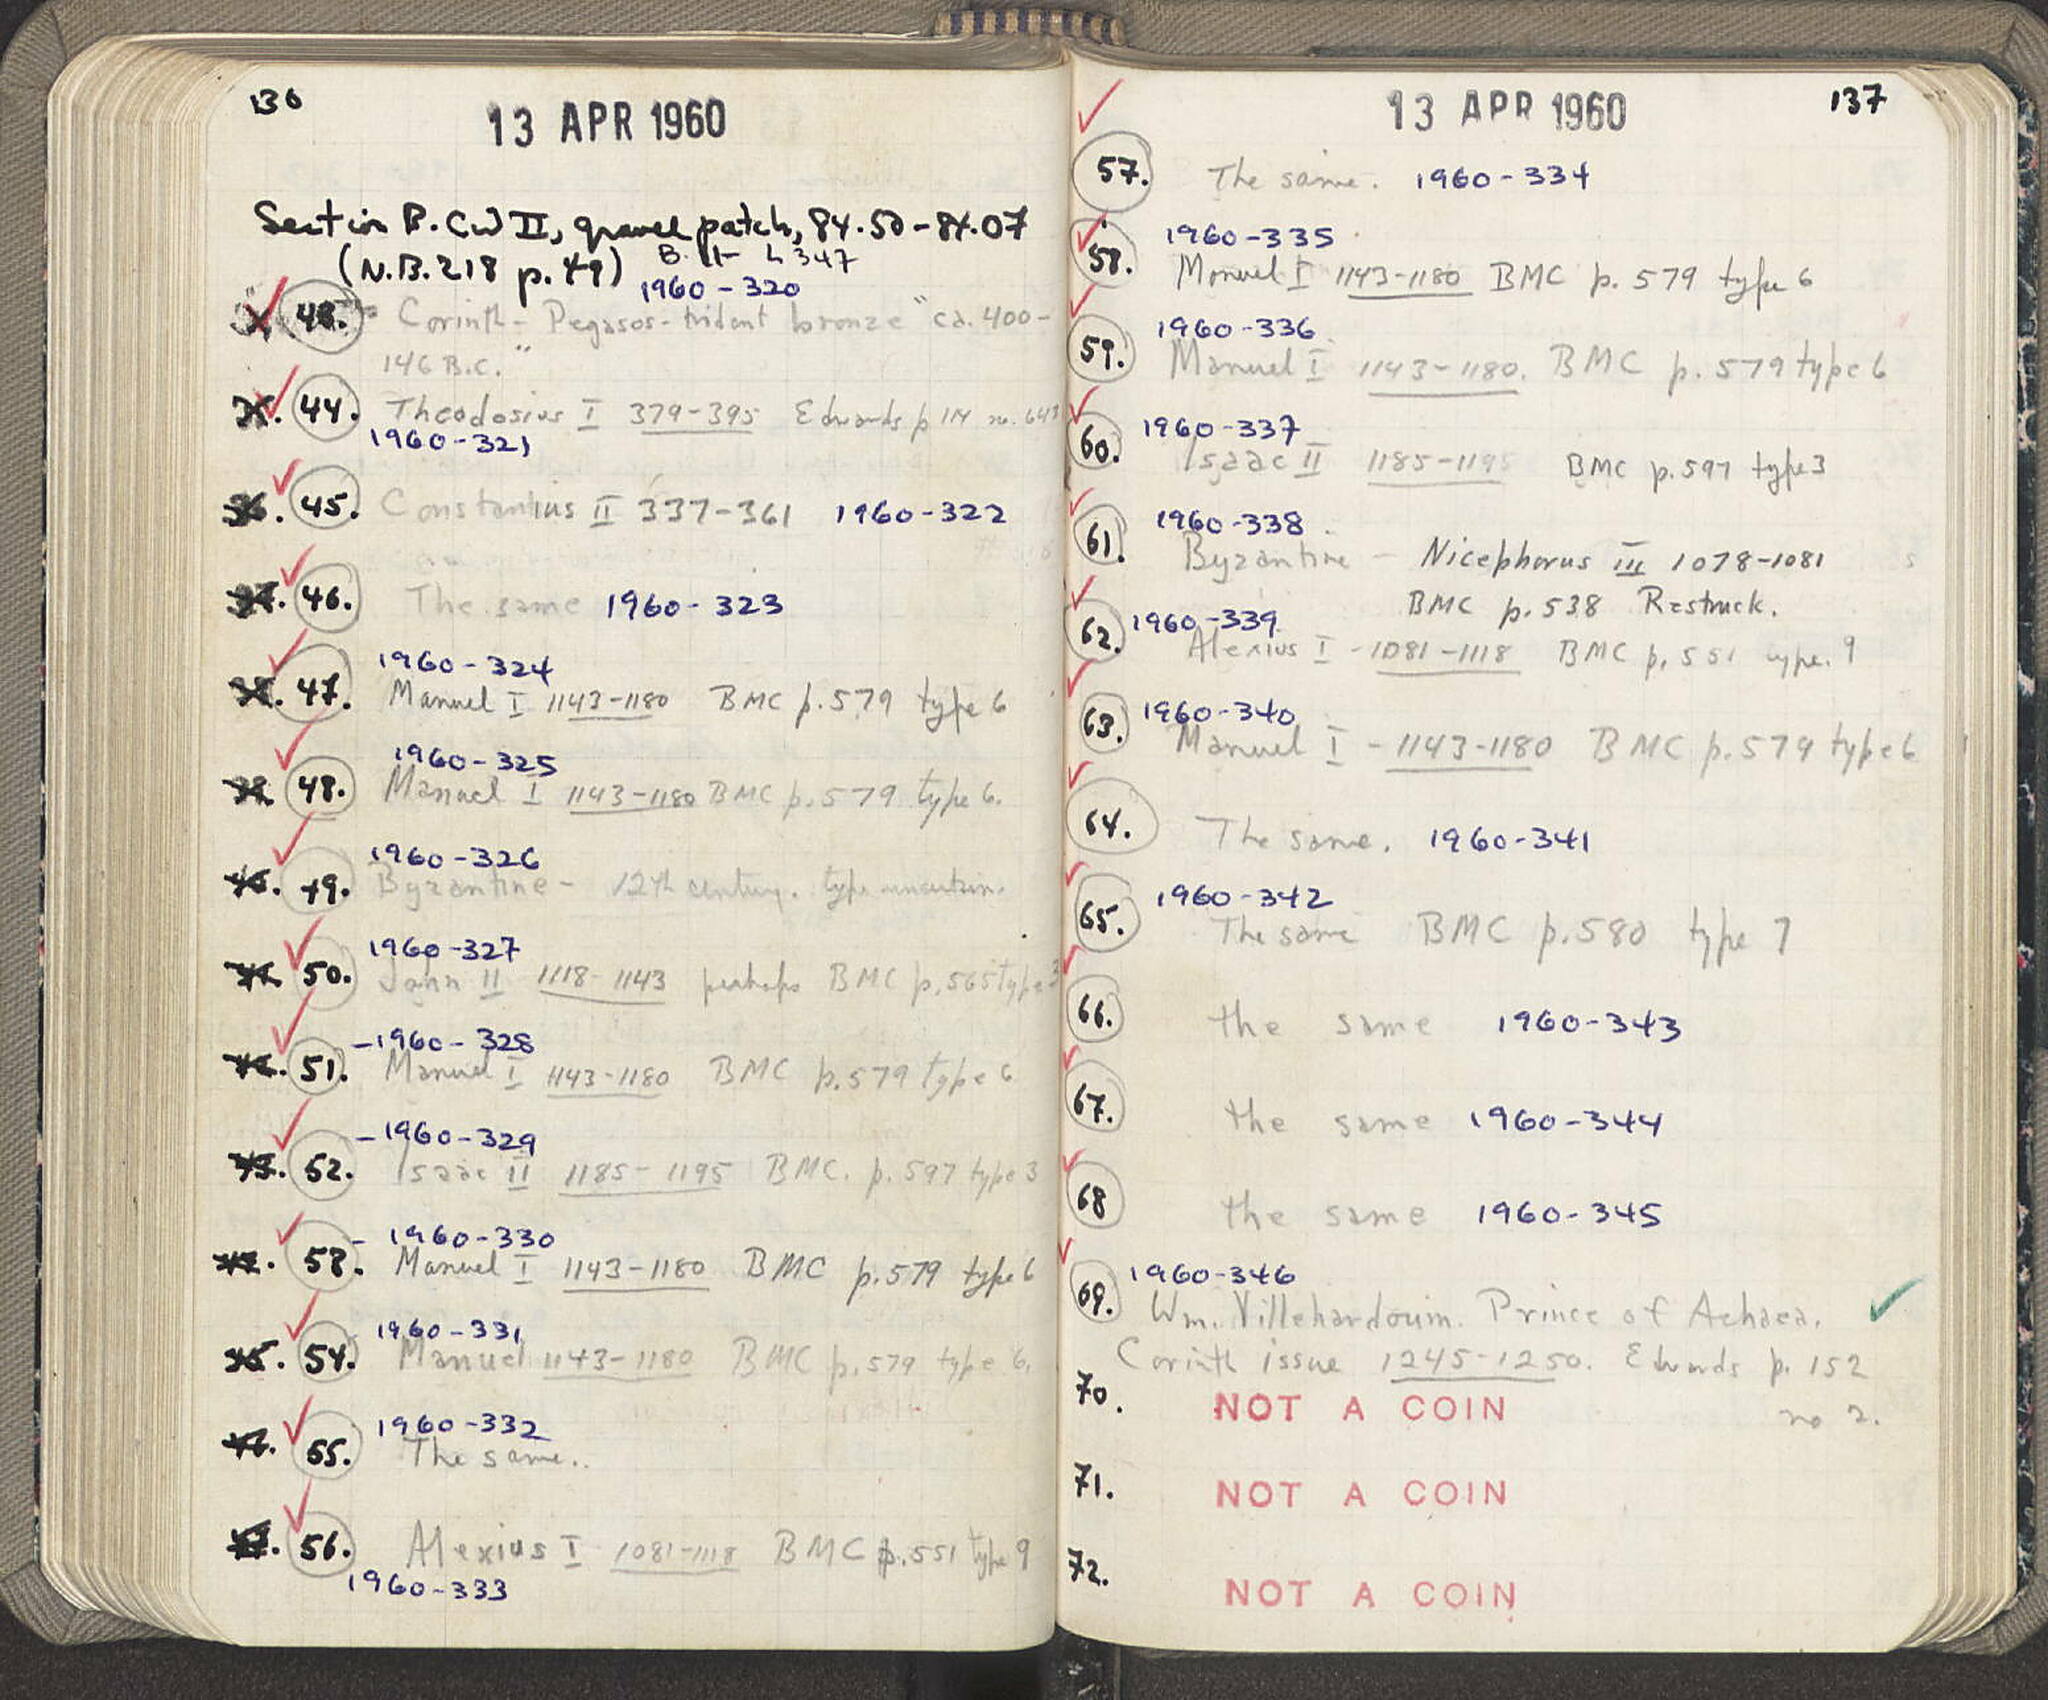 136
13 APR 1960
Section B. CW II, gravel patch, 84.50-84.07
(N.B.218 p.49) B. II- h 347
1960-320
43. Corinth - Pegasos-trident bronze "ca. 400-
146 B.C."
44. Theodosius I 379-395 Edwards p 114 no. 643
1960-321
45. Constantius II 337-361 1960-322
46. The same 1960-323
1960-324
47. Manuel I 1143-1180 BMC p.579 type 6
1960-325
48. Manuel I 1143-1180 BMC p.579 type 6.
1960-326
49. Byzantine - 12th century. type uncertain.
1960-327
50. John II 1118-1143 perhaps BMC p.565 type 3
-1960-328
51. Manuel I 1143-1180 BMC p.579 type 6
-1960-329
52. Isaac II 1185-1195 BMC. p.597 type 3
-1960-330
53. Manuel I 1143-1180 BMC p.579 type 6
1960-331
54. Manuel 1143-1180 BMC p.579 type 6.
1960-332
55. The same..
56. Alexius I 1081-1118 BMC p.551 type 9
1960-333
137
13 APR 1960
57. The same. 1960-334
1960-335
58. Manuel I 1143-1180 BMC p.579 type 6
1960-336
59. Manuel I 1143-1180. BMC p.579 type 6
1960-337
60. Isaac II 1185-1195 BMC p.597 type 3
1960-338
61. Byzantine - Nicephorus III 1078-1081
BMC p.538 Restruck.
1960-339
62. Alexius I - 1081-1118 BMC p.551 type. 9
1960-340
63. Manuel I - 1143-1180 BMC p.579 type 6
64. The same. 1960-341
1960-342
65. The same BMC p.580 type 7
66. the same 1960-343
67. the same 1960-344
68 the same 1960-345
1960-346
69. Wm. Villehardouin. Prince of Achaea.
Corinth issue 1245-1250. Edwards p. 152
no 2.
70. NOT A COIN
71. NOT A COIN
72. NOT A COIN